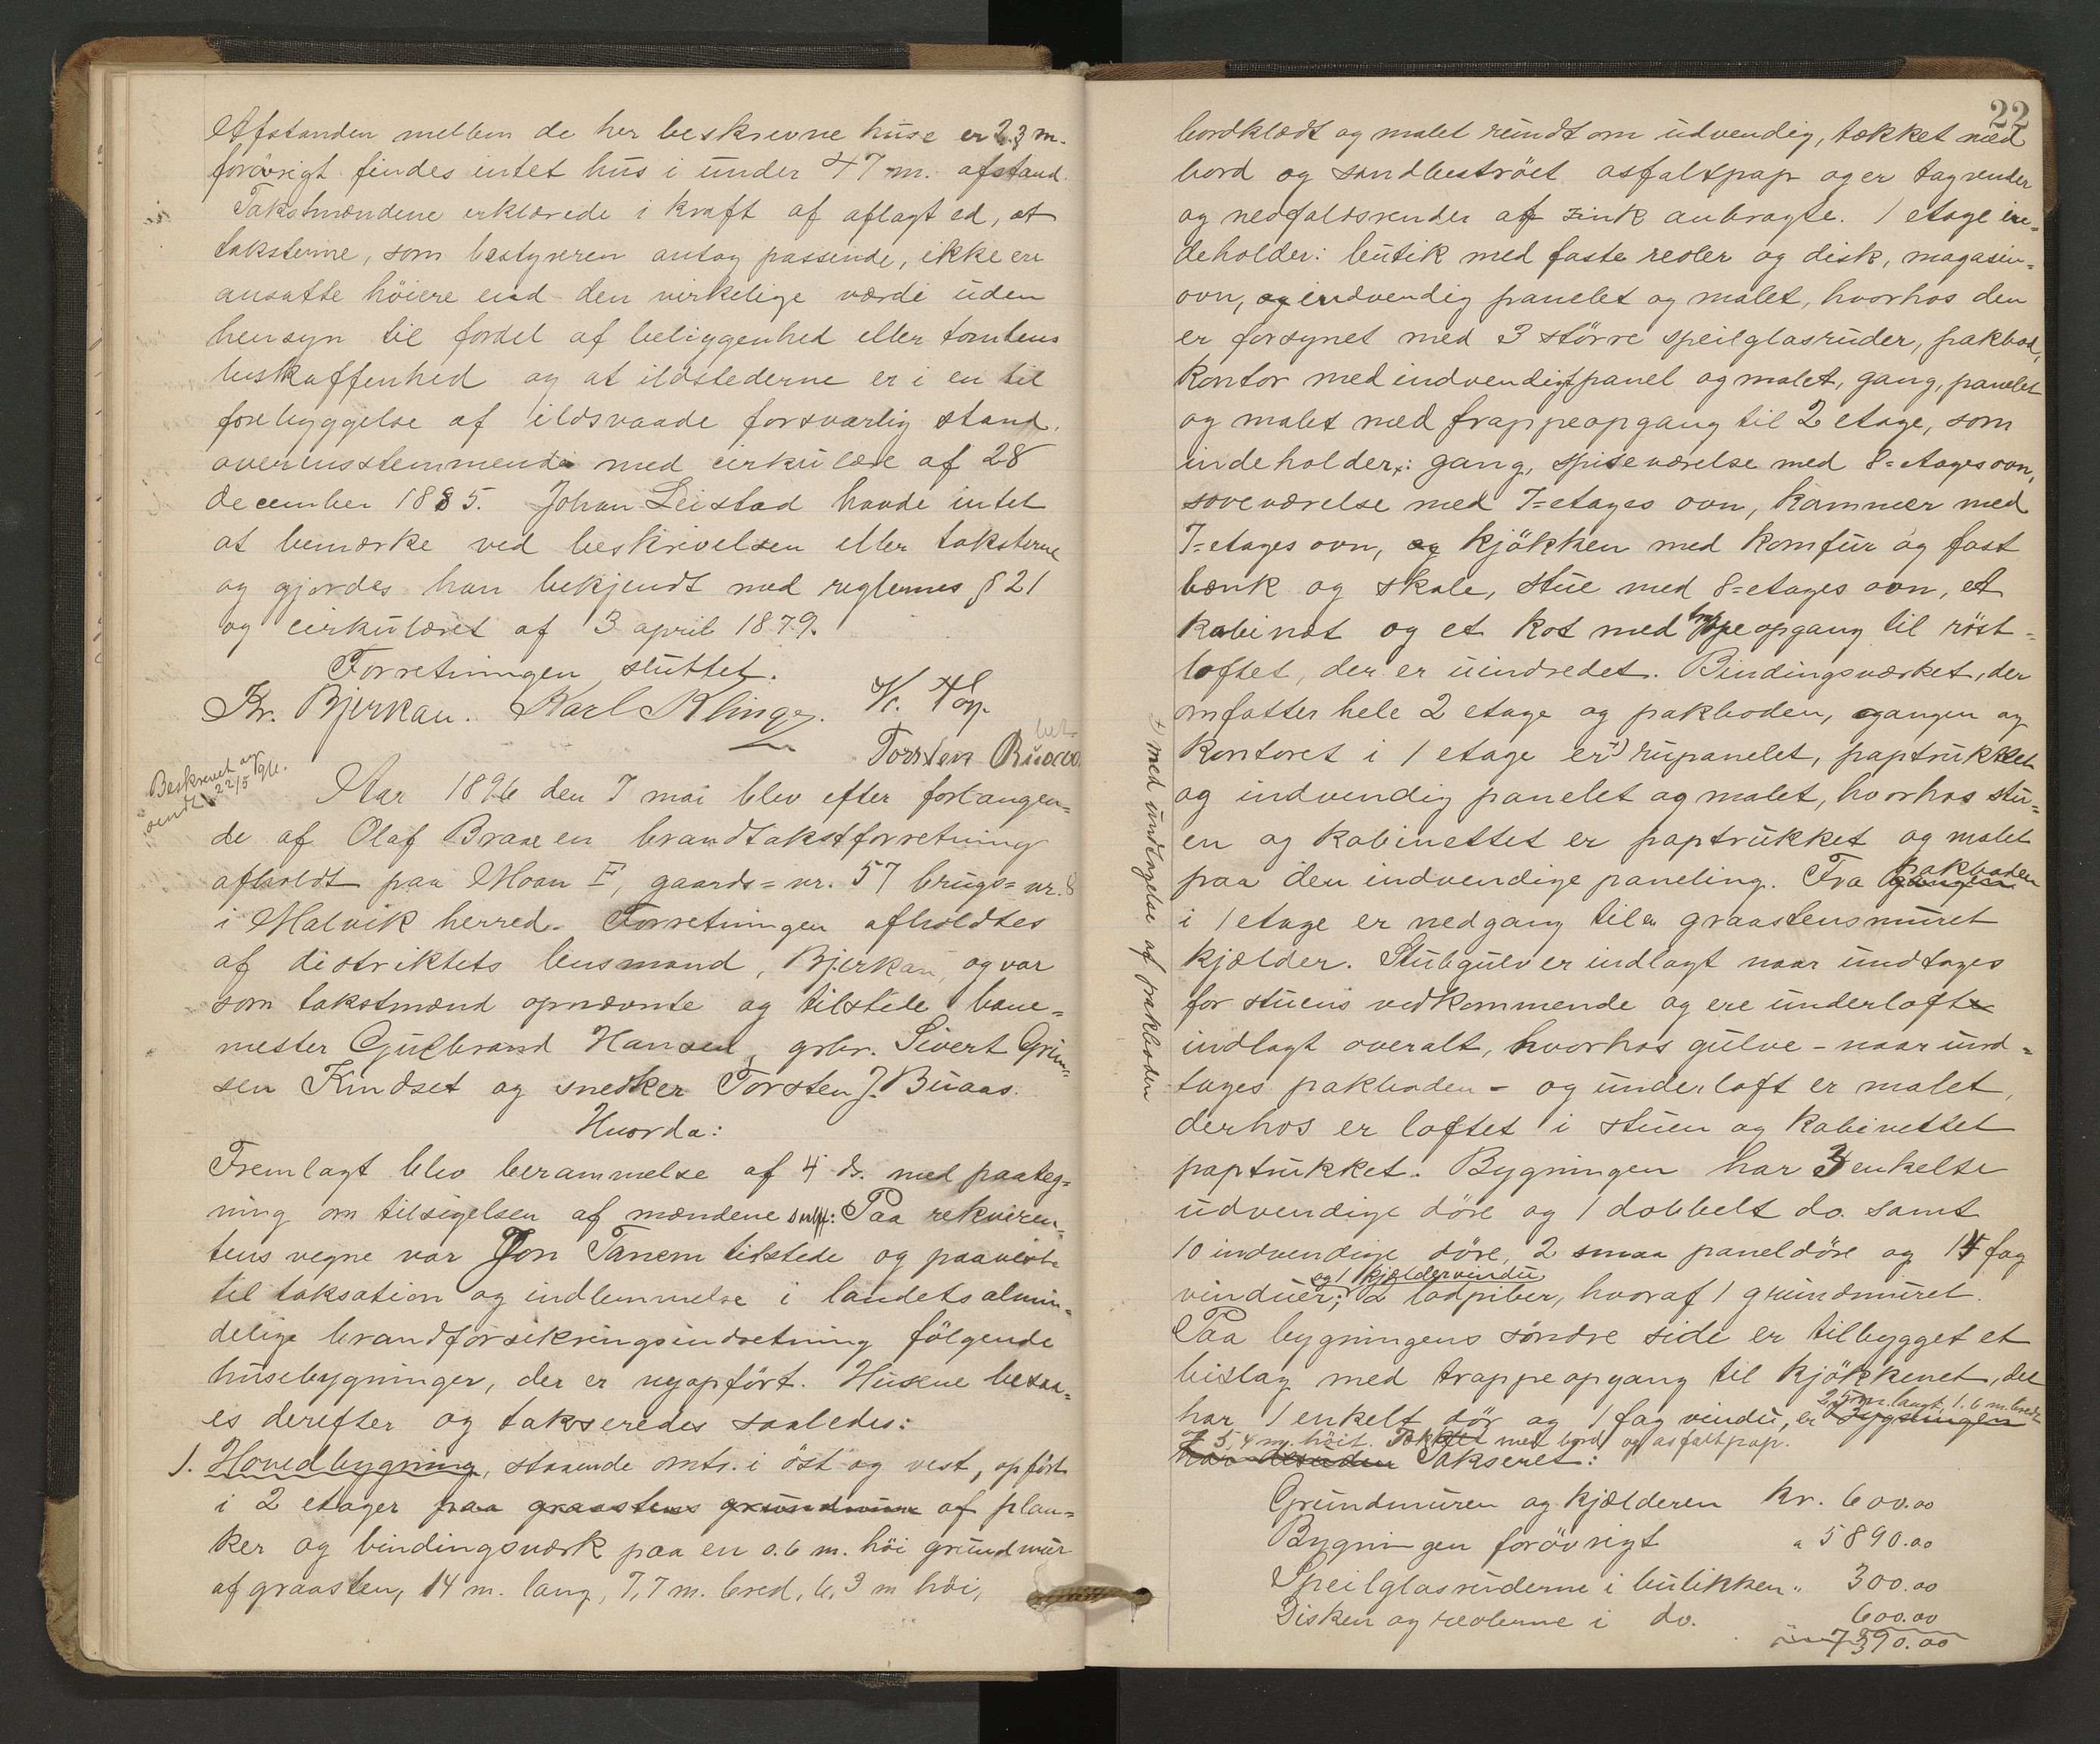 Afstanden mellem de her beskrevne huse er 2.3 m.
forøvrigt findes intet hus i under 47 m. afstand.
Takstmændene erklærede i kraft af aflagt ed, at
taksterne, som bestyreren antog passende, ikke ere
ansatte höiere end den virkelige værdi uden
hensyn til fordel af beliggenhed eller tomtens
beskaffenhed og at ildstederne er i en til
forebyggelse af ildsvaade forsvarlig stand.
overensstemmende med cirkulære af 28
december 1885. Johan Leistad havde intet
at bemærke ved beskrivelsen eller taksterne
og gjordes han bekjendt med reglernes § 21
og cirkulæret af 3 april 1879.
Forretningen sluttet.
Kr. Bjerkan. Karl Klinge.
Torsten Buaas
Beskrevet og
sendt 22/5 96.
Aar 1896 den 7 mai blev efter forlangen-
de af Olaf Braxe en brandtakstforretning
afholdt paa Moan F, gaards-nr. 57 brugs-nr. 8
i Malvik herred. Forretningen afholdtes
af distriktets lensmand, Bjerkan, og var
som takstmænd opnævnte og tilstede bane-
mester Gulbrand Hansen, gbr. Sivert Grim-
sen Kindset og snedker Torsten J. Buaas.
Hvorda:
Fremlagt blev berammelse af 4 ds. med paateg-
ning om tilsigelsen af mændene Paa rekviren-
tens vegne var Jon Tanem tilstede og paaviste
til taksation og indlemmelse i landets almin-
delige brandforsikringsindretning følgende
husebygninger, der er nyopfört. Husene besaa-
es derefter og takseredes saaledes:
1. Hovedbygning, staaende omtr. i öst og vest, opfört
i 2 etager paa graastens grundmure af plan-
ker og bindingsværk paa en 0.6 m. höi grundmur
af graasten, 14 m. lang, 7,7 m. bred, 6,3 m höi,
22
bordklædt og malet rundt om udvendig, tækket med
bord og sandbeströet asfaltpap og er tagrender
og nedfaldsrender af zink anbragte. 1 etage in-
deholder: butik med faste reoler og disk, magasin-
ovn, og indvendig panelet og malet, hvorhos den
er forsynet med 3 större speilglasruder, pakbod,
kontor med indvendigt panel og malet, gang, panelet
og malet med trappeopgang til 2 etage, som
indeholder: gang, spiseværelse med 8-etages ovn,
soveværelse med 7-etages ovn, kammer med
7-etages ovn, og kjökken med komfur og fast
bænk og skale, stue med 8-etages ovn, et
kabinet og et kot med trappeopgang til röst-
loftet, der er uindredet. Bindingsværket, der
omfatter hele 2 etage og pakboden, gangen og
kontoret i 1 etage er +) rupanelet, paptrukket
og indvendig panelet og malet, hvorhos stu-
en og kabinettet er paptrukket og malet
paa den indvendige paneling. Fra gangen pakboden
i 1 etage er nedgang til en graastensmuret
kjælder. Stubgulv er indlagt naar undtages
for stuens vedkommende og ere underloft
indlagt overalt, hvorhos gulve - naar und-
tages pakboden - og underloft er malet,
derhos er loftet i stuen og kabinettet
paptrukket. Bygningen har 3 enkelte
udvendige döre og 1 dobbelt do. samt
10 indvendige döre, 2 smaa paneldöre og 14 fag
og 1 kjældervindu
vinduer; 2 ladpiber, hvoraf 1 grundmuret.
Paa bygningens söndre side er tilbygget et
bislag med trappeopgang til kjökkenet, det
2,5 m. langt, 1.6 m. bredt
har 1 enkelt dör og 1 fag vindu, er bygningen
5,4 m. höit. Tækket med bord og asfaltpap.
har desuden Takseret:
Grundmuren og kjælderen kr. 600.00
Bygningen forövrigt " 5890.00
Speilglasruderne i butikken " 300.00
Disken og reolerne i do. 600.00
7390.00
+) med undtagelse af pakboden